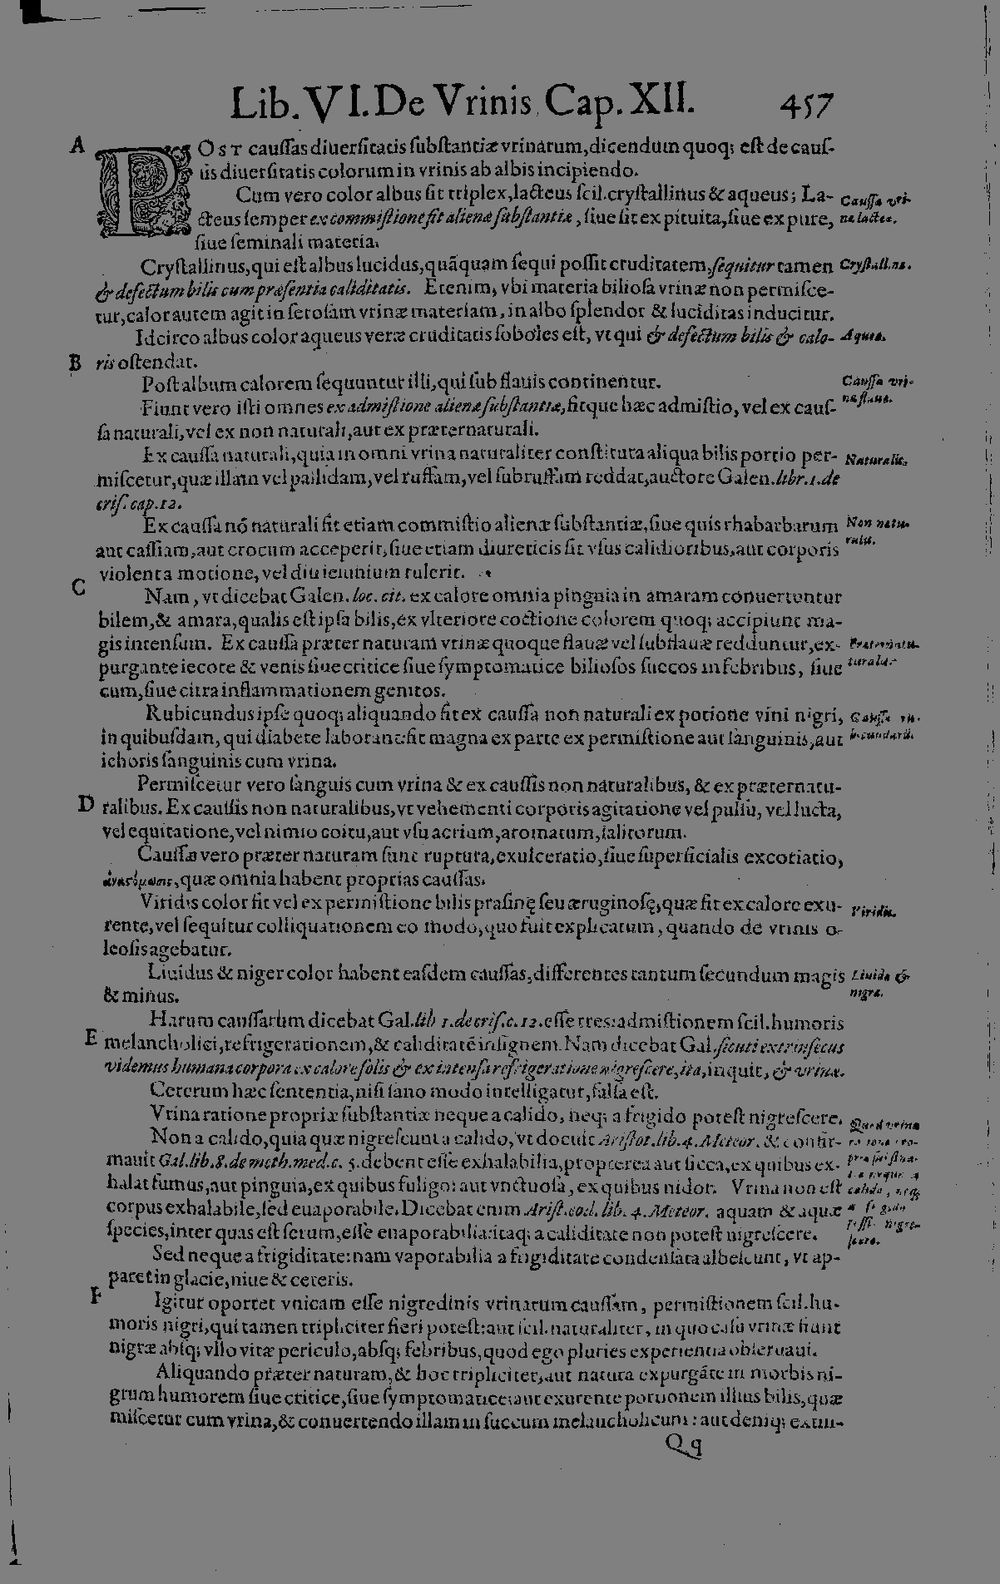 Lib. VI. De Vrinis Cap. XII. 457
A
POST caussas diuersitatis substantiæ vrinarum, dicendum quoq; est de caus-
iis diuersitatis colorum in vrinis ab albis incipiendo.
Cum vero color albus sit triplex, lacteus scil. crystallinus & aqueus; La-
Caussa vri-
cteus semper ex commistione fit alienæ substantiæ, siue sit ex pituita, siue ex pure,
næ lacteæ.
siue seminali materia.
Crystallinus, qui est albus lucidus, quãquam sequi possit cruditatem, sequitur tamen
Crystallinæ.
& defectum bilis cum præsentia caliditatis. Etenim, vbi materia biliosa vrinæ non permisce-
tur, calor autem agit in serosam vrinæ materiam, in albo splendor & luciditas inducitur.
Idcirco albus color aqueus veræ cruditatis soboles est, vt qui & defectum bilis & calo-
Aqueæ.
B
ris ostendat.
Post album calorem sequuntur illi, qui sub flauis continentur.
Caussa vri-
Fiunt vero isti omnes ex admistione alienæ substantiæ, fitque hæc admistio, vel ex caus-
næ flauæ.
sa naturali, vel ex non naturali, aut ex præternaturali.
Ex caussa naturali, quia in omni vrina naturaliter constituta aliqua bilis portio per-
Naturalis.
miscetur, quæ illam vel pallidam, vel ruffam, vel subruffam reddat, auctore Galen. libr. 1. de
cris. cap. 12.
Ex caussa nō naturali fit etiam commistio alienæ substantiæ, siue quis rhabarbarum
Non natu-
aut cassiam, aut crocum acceperit, siue etiam diureticis sit vsus calidioribus, aut corporis
ralis.
violenta motione, vel diu ieiunium tulerit.
C
Nam, vt dicebat Galen. loc. cit. ex calore omnia pinguia in amaram conuertuntur
bilem, & amara, qualis est ipsa bilis, ex vlteriore coctione colorem quoq; accipiunt ma-
gis intensum. Ex caussa præter naturam vrinæ quoque flauæ vel subflauæ redduntur, ex-
Præternatu-
purgante iecore & venis siue critice siue symptomatice biliosos succos in febribus, siue
turalis.
cum, siue citra inflammationem genitos.
Rubicundus ipse quoq; aliquando fit ex caussa non naturali ex potione vini nigri,
in quibusdam, qui diabete laborant: fit magna ex parte ex permistione aut sanguinis, aut
ichoris sanguinis cum vrina.
Permiscetur vero sanguis cum vrina & ex caussis non naturalibus, & ex præternatu-
D
ralibus. Ex caussis non naturalibus, vt vehementi corporis agitatione vel pulsu, vel lucta,
vel equitatione, vel nimio coitu, aut vsu acrium, aromatum, salitorum.
Caussæ vero præter naturam sunt ruptura, exulceratio, siue superficialis excoriatio,
ἀναστόμωσις, quæ omnia habent proprias caussas.
Viridis color fit vel ex permistione bilis prasinę seu æruginosę, quæ fit ex calore exu-
Viridis.
rente, vel sequitur colliquationem eo modo, quo fuit explicatum, quando de vrinis o-
leosis agebatur.
Liuidus & niger color habent easdem caussas, differentes tantum secundum magis
Liuidæ &
& minus.
nigræ.
Harum caussarum dicebat Gal. lib 1. de cris. c. 12. esse tres: admistionem scil. humoris
E
melancholici, refrigerationem, & caliditatē insignem. Nam dicebat Gal. sicuti extrinsecus
videmus humana corpora ex calore solis & ex intensa refrigeratione nigrescere, ita, inquit, & vrinæ.
Ceterum hæc sententia, nisi sano modo intelligatur, falsa est.
Vrina ratione propriæ substantiæ neque a calido, neq; a frigido potest nigrescere.
Quod vrina
Non a calido, quia quæ nigrescunt a calido, vt docuit Aristot. lib. 4. Meteor. & confir-
mauit Gal. lib. 8. de meth. med. c. 5. debent esse exhalabilia, propterea aut sicca, ex quibus ex-
halat fumus, aut pinguia, ex quibus fuligo: aut vnctuosa, ex quibus nidor. Vrina non est
calida, neq;
corpus exhalabile, sed euaporabile. Dicebat enim Arist. eod. lib. 4. Meteor. aquam & aquæ
species, inter quas est serum, esse euaporabilia: itaq; a caliditate non potest nigrescere.
Sed neque a frigiditate: nam vaporabilia a frigiditate condensata albescunt, vt ap-
paret in glacie, niue & ceteris.
F
Igitur oportet vnicam esse nigredinis vrinarum caussam, permistionem scil. hu-
moris nigri, qui tamen tripliciter fieri potest: aut scil. naturaliter, in quo casu vrinæ fiunt
nigræ absq; vllo vitæ periculo, absq; febribus, quod ego pluries experientia obseruaui.
Aliquando præter naturam, & hoc tripliciter, aut natura expurgāte in morbis ni-
grum humorem siue critice, siue symptomatice: aut exurente portionem illius bilis, quæ
miscetur cum vrina, & conuertendo illam in succum melancholicum: aut deniq; extin-
Qq